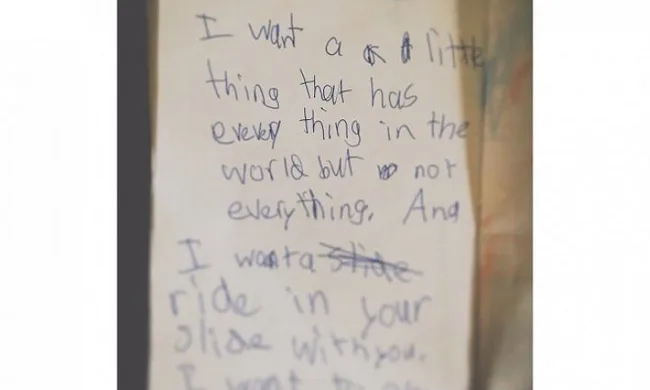 I want a little
thing that has
evevey thing in the
world but not
everything. And
I want a slide
ride in your
slide with you.
I want to